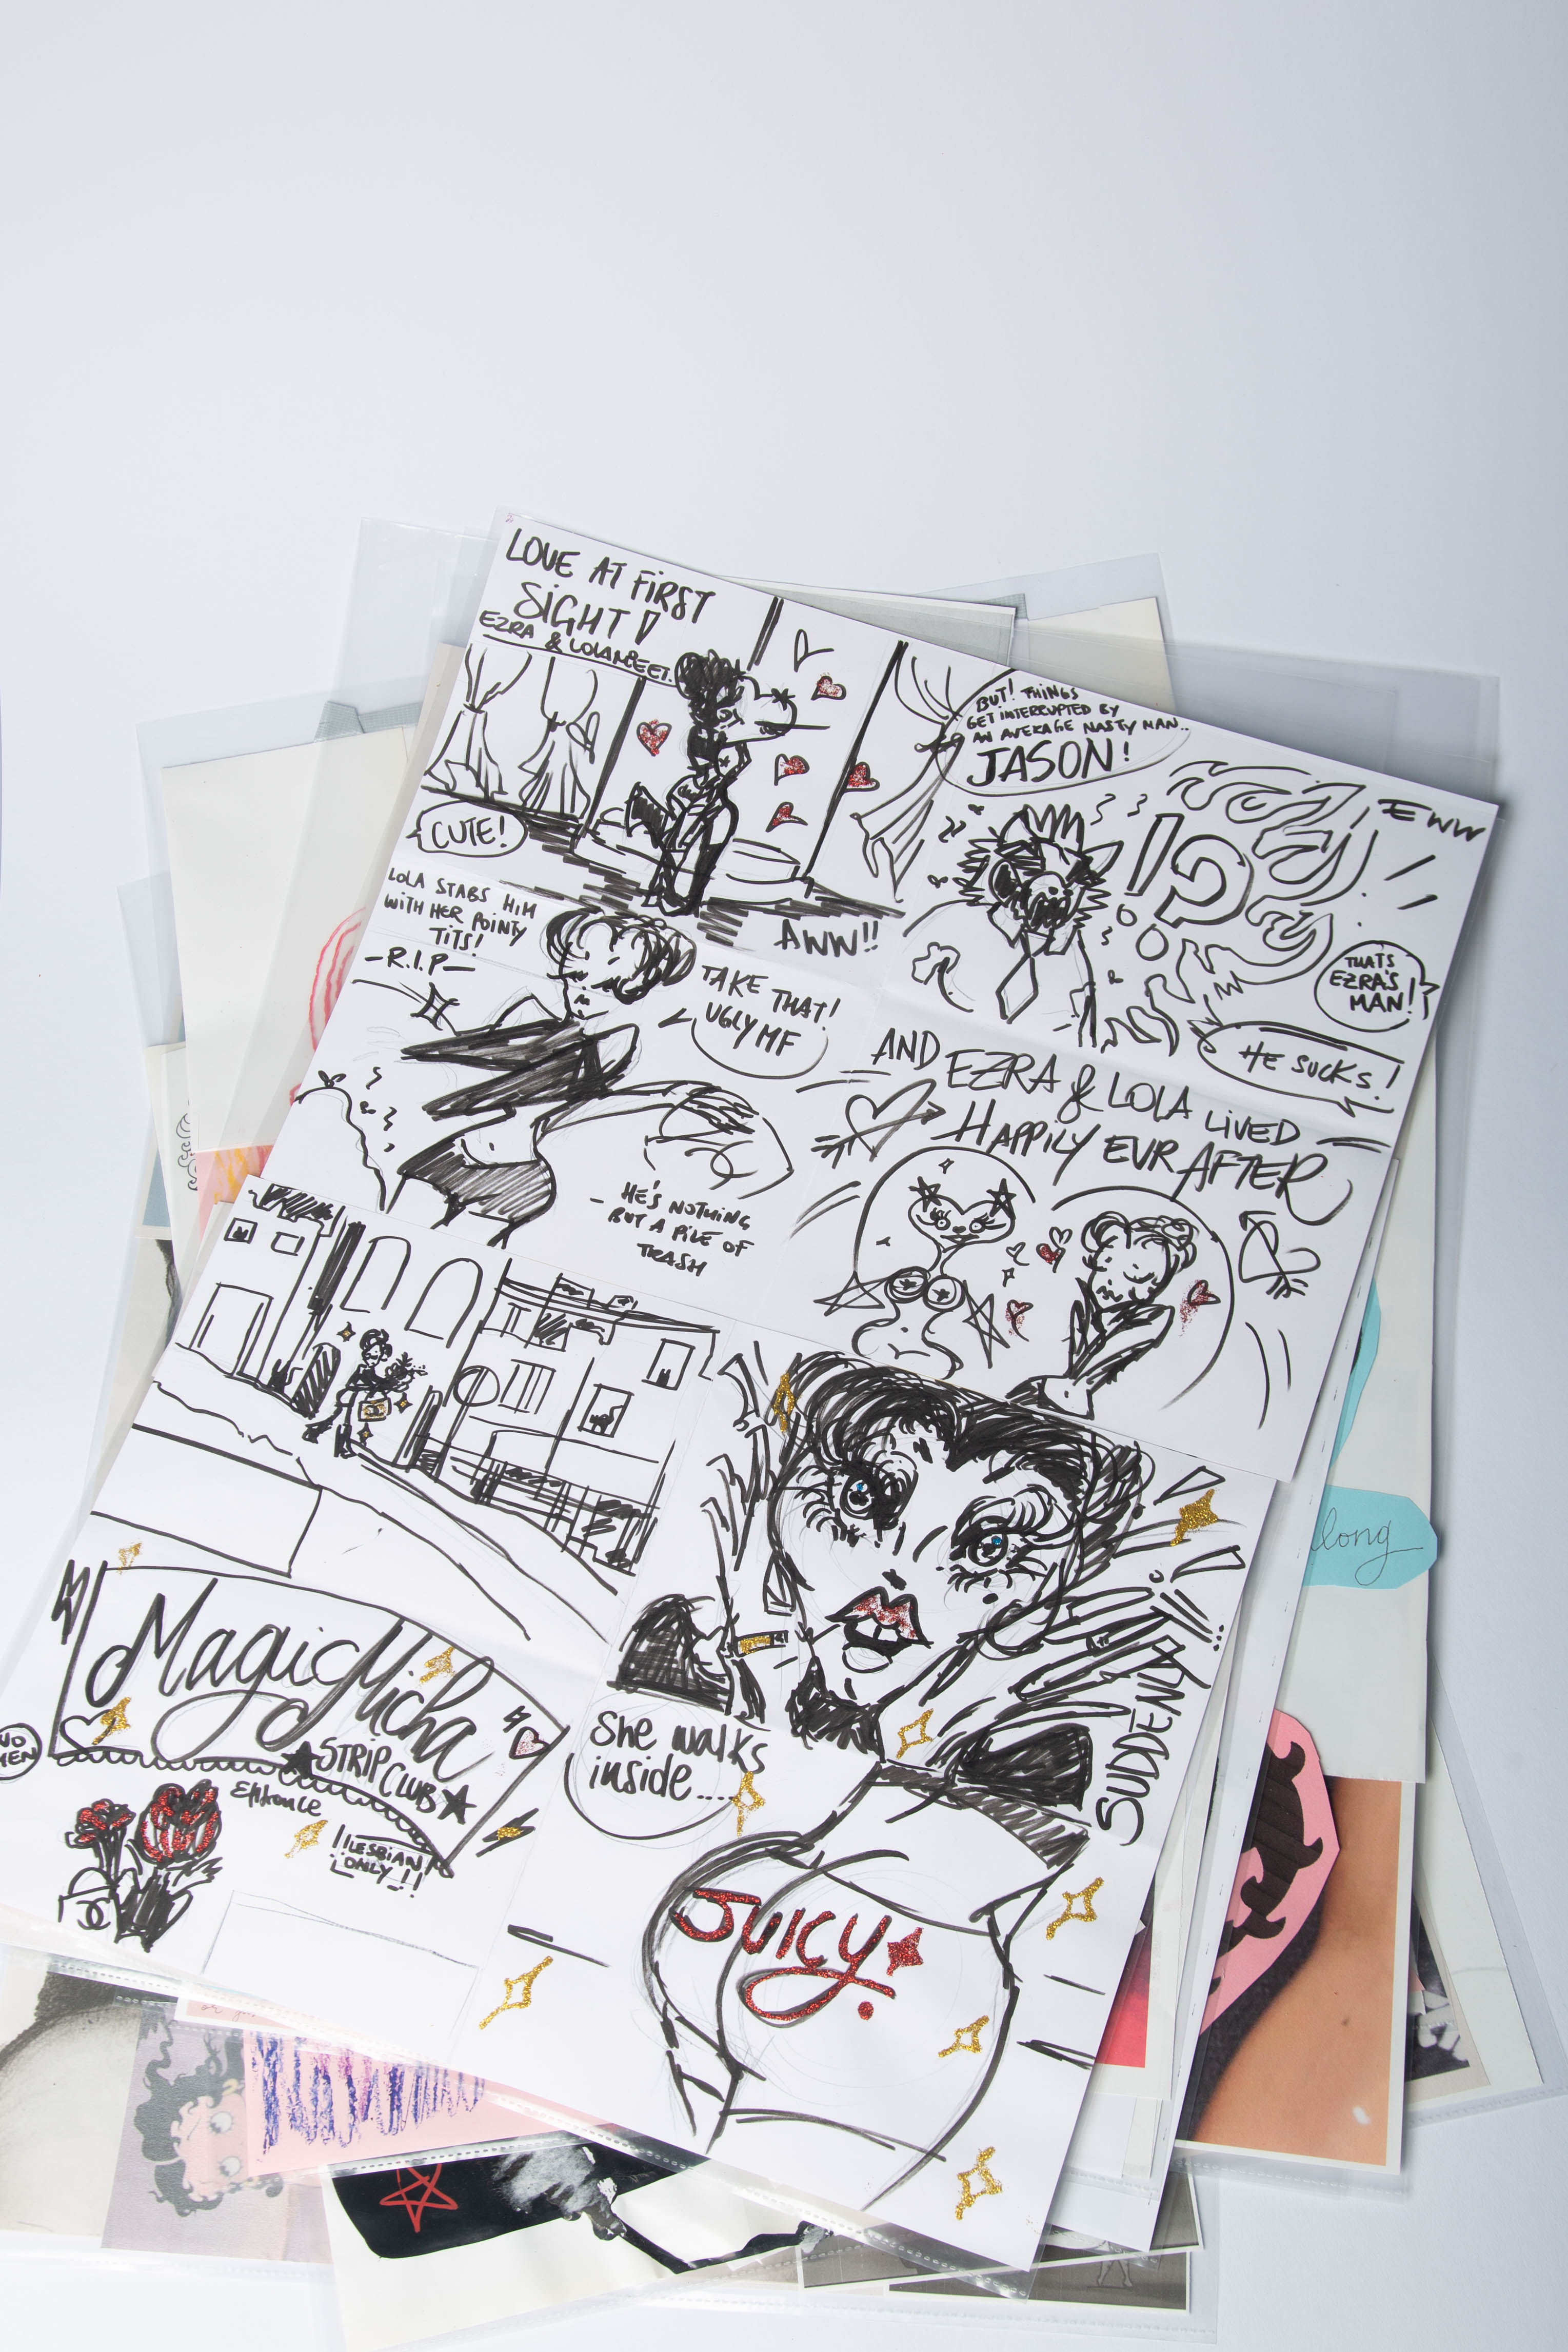 LOVE AT FIRST
SIGHT!
EZRA & LOLA MEET.
CUTE!
AWW!!
BUT! THINGS
GET INTERRUPTED BY
AN AVERAGE NASTY MAN..
JASON!
EWW
THAT'S
EZRA'S
MAN!
HE SUCKS!
LOLA STABS HIM
WITH HER POINTY
TITS!
-R.I.P-
TAKE THAT!
UGLY MF
- HE'S NOTHING
BUT A PILE OF
TRASH
AND EZRA & LOLA LIVED
HAPPILY EVR AFTER
SUDDENLY...
Magic Micha
★ STRIP CLUB ★
Entrance
!!LESBIAN
ONLY!!
She walks
inside....
JUICY
long